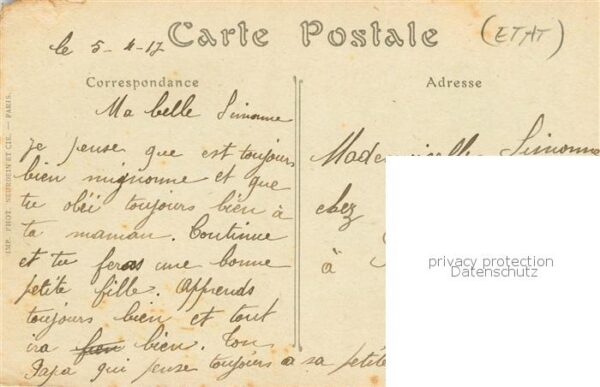 le 5-4-17
Carte Postale
(ETAT)
Correspondance
Adresse
Ma belle Simonne
Je pense que est toujours
bien mignonne et que
tu obéi toujours bien à
ta maman. Continue
et tu feras une bonne
petite fille. Apprends
toujours bien et tout
ira bien bien. Ton
Papa qui pense toujours a sa petite
Mademoiselle Simonne
chez
à
privacy protection
Datenschutz
IMP. PHOT. NEURDEIN ET CIE. — PARIS.